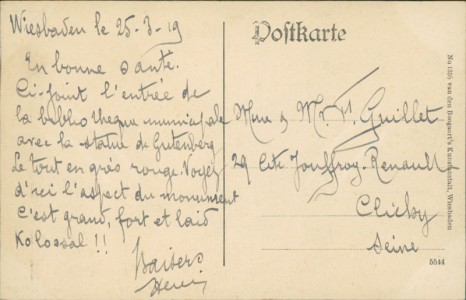 Wiesbaden le 25-3-19
En bonne santé.
Ci-joint l'entrée de
la bibliothèque municipale
avec la statue de Gutenberg
Le tout en grès rouge. Voyez
d'ici l'aspect du monument
c'est grand, fort et laid
Kolossal !!
Baisers
Henri
Postkarte
Mme & Mr. Guillet
29 Cité Jouffroy-Renault
Clichy
Seine
van den Boogaart's Kunstanstalt, Wiesbaden
5544